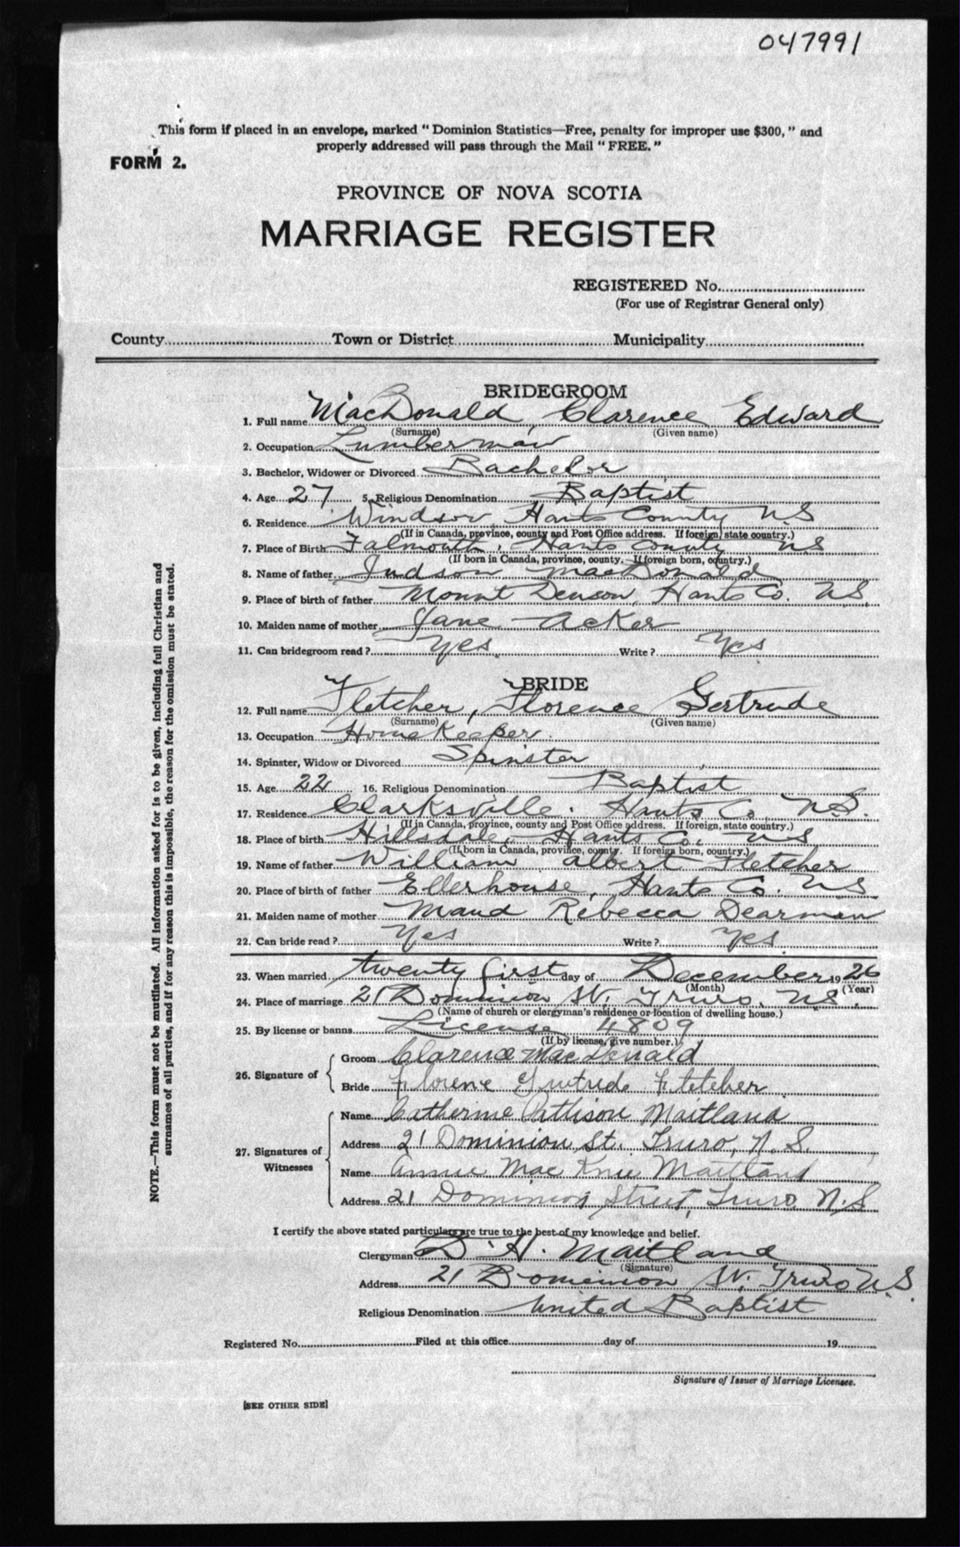 047991
This form if placed in an envelope, marked "Dominion Statistics—Free, penalty for improper use $300," and
properly addressed will pass through the Mail "FREE."
FORM 2.
PROVINCE OF NOVA SCOTIA
MARRIAGE REGISTER
REGISTERED No.
(For use of Registrar General only)
County Town or District Municipality
BRIDEGROOM
1. Full name MacDonald, Clarence Edward
(Surname) (Given name)
2. Occupation Lumberman
3. Bachelor, Widower or Divorced Bachelor
4. Age 27 5. Religious Denomination Baptist
6. Residence Windsor, Hants County N.S
(If in Canada, province, county and Post Office address. If foreign, state country.)
7. Place of Birth Falmouth, Hants County NS
(If born in Canada, province, county. If foreign born, country.)
8. Name of father Judson MacDonald
9. Place of birth of father Mount Denson, Hants Co. N.S.
10. Maiden name of mother Jane Acker
11. Can bridegroom read? Yes Write? Yes
BRIDE
12. Full name Fletcher, Florence Gertrude
(Surname) (Given name)
13. Occupation HomeKeeper
14. Spinster, Widow or Divorced Spinster
15. Age 22 16. Religious Denomination Baptist
17. Residence Clarksville. Hants Co. N.S.
(If in Canada, province, county and Post Office address. If foreign, state country.)
18. Place of birth Hillsdale, Hants Co. NS
(If born in Canada, province, county. If foreign born, country.)
19. Name of father William Albert Fletcher
20. Place of birth of father Ellerhouse, Hants Co. NS
21. Maiden name of mother Maud Rebecca Dearman
22. Can bride read? Yes Write? Yes
23. When married twenty first day of December 1926
(Month) (Year)
24. Place of marriage 21 Dominion St. Truro, N.S.
(Name of church or clergyman's residence or location of dwelling house.)
25. By license or banns License 4809
(If by license, give number.)
26. Signature of
Groom Clarence MacDonald
Bride Florene Gertrude Fletcher
27. Signatures of Witnesses
Name Catherine Pattison Maitland
Address 21 Dominion St. Truro, N.S.
Name Annie Mac Maitland
Address 21 Dominion Street, Truro N.S
I certify the above stated particulars are true to the best of my knowledge and belief.
Clergyman D. H. Maitland
(Signature)
Address 21 Dominion St. Truro N.S.
Religious Denomination United Baptist
Registered No. Filed at this office day of 19
Signature of Issuer of Marriage Licenses.
[SEE OTHER SIDE]
NOTE.—This form must not be mutilated. All information asked for is to be given, including full Christian and
surnames of all parties, and if for any reason this is impossible, the reason for the omission must be stated.